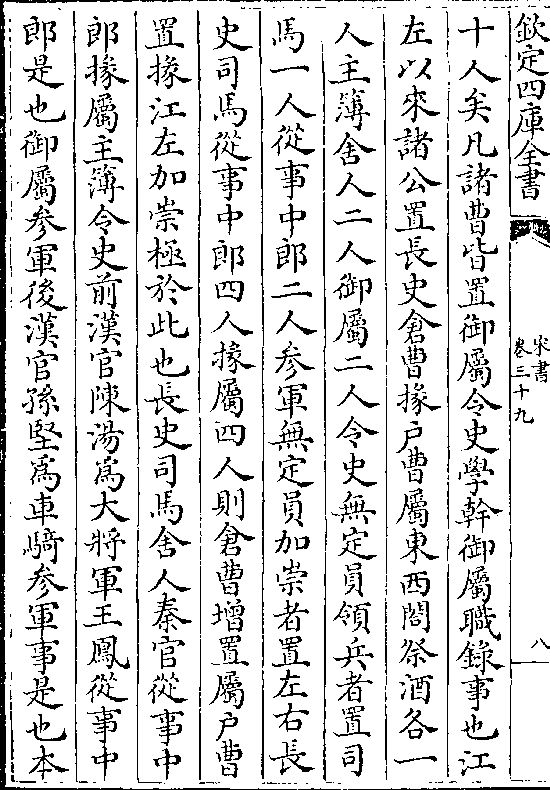 欽定四庫全書
宋書
卷三十九
八
十人矣凡諸曹皆置御屬令史學幹御屬職錄事也江
左以來諸公置長史倉曹掾户曹屬東西閤祭酒各一
人主簿舍人二人御屬二人令史無定員領兵者置司
馬一人從事中郎二人参軍無定員加崇者置左右長
史司馬從事中郎四人掾屬四人則倉曹增置屬户曹
置掾江左加崇極於此也長史司馬舍人秦官從事中
郎掾屬主簿令史前漢官陳湯為大將軍王鳳從事中
郎是也御屬参軍後漢官孫堅為車騎参軍事是也本